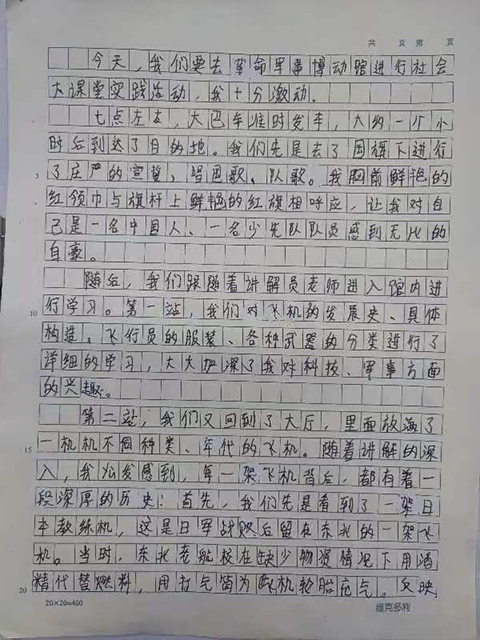 共 页 第 页
今天，我们要去革命军事博动馆进行社会
大课堂实践活动，我十分激动。
七点左右，大巴车准时发车，大约一个小
时后到达了目的地。我们先是去了国旗下进行
5 了庄严的宣誓、唱国歌、队歌。我胸前鲜艳的
红领巾与旗杆上鲜艳的红旗相呼应，让我对自
己是一名中国人、一名少先队队员感到无比的
自豪。
随后，我们跟随着讲解员老师进入馆内进
10 行学习。第一站，我们对飞机的发展史、具体
构造、飞行员的服装、各种武器的分类进行了
详细的学习，大大加深了我对科技、军事方面
的兴趣。
第二站，我们又回到了大厅，里面放满了
15 一机机不同种类、年代的飞机。随着讲解的深
入，我愈发感到，每一架飞机背后，都有着一
段深厚的历史：首先，我们先是看到了一架日
本教练机，这是日军战败后留在东北的一架飞
机。当时，东北老航校在缺少物资情况下用酒
20 精代替燃料，用打气筒为飞机轮胎充气。反映
20×20=400 维克多利